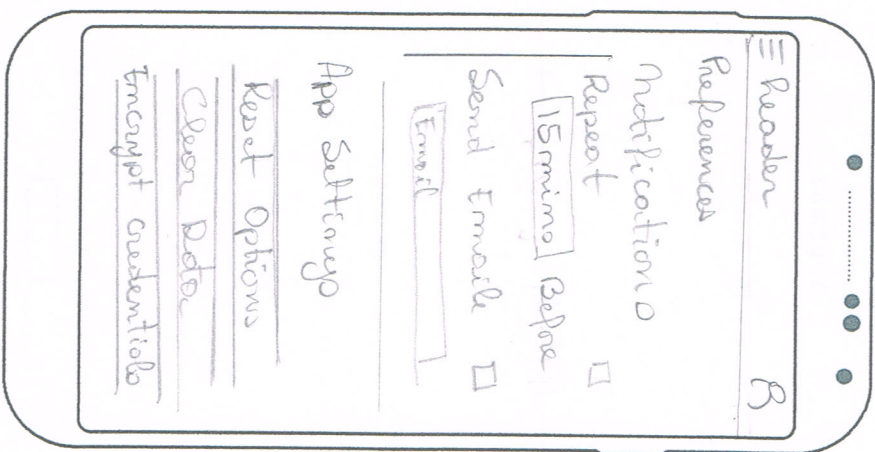 header
Preferences
Notifications
Repeat
15 mins Before
Send Emails
Email
App Settings
Reset Options
Clear Data
Encrypt credentials